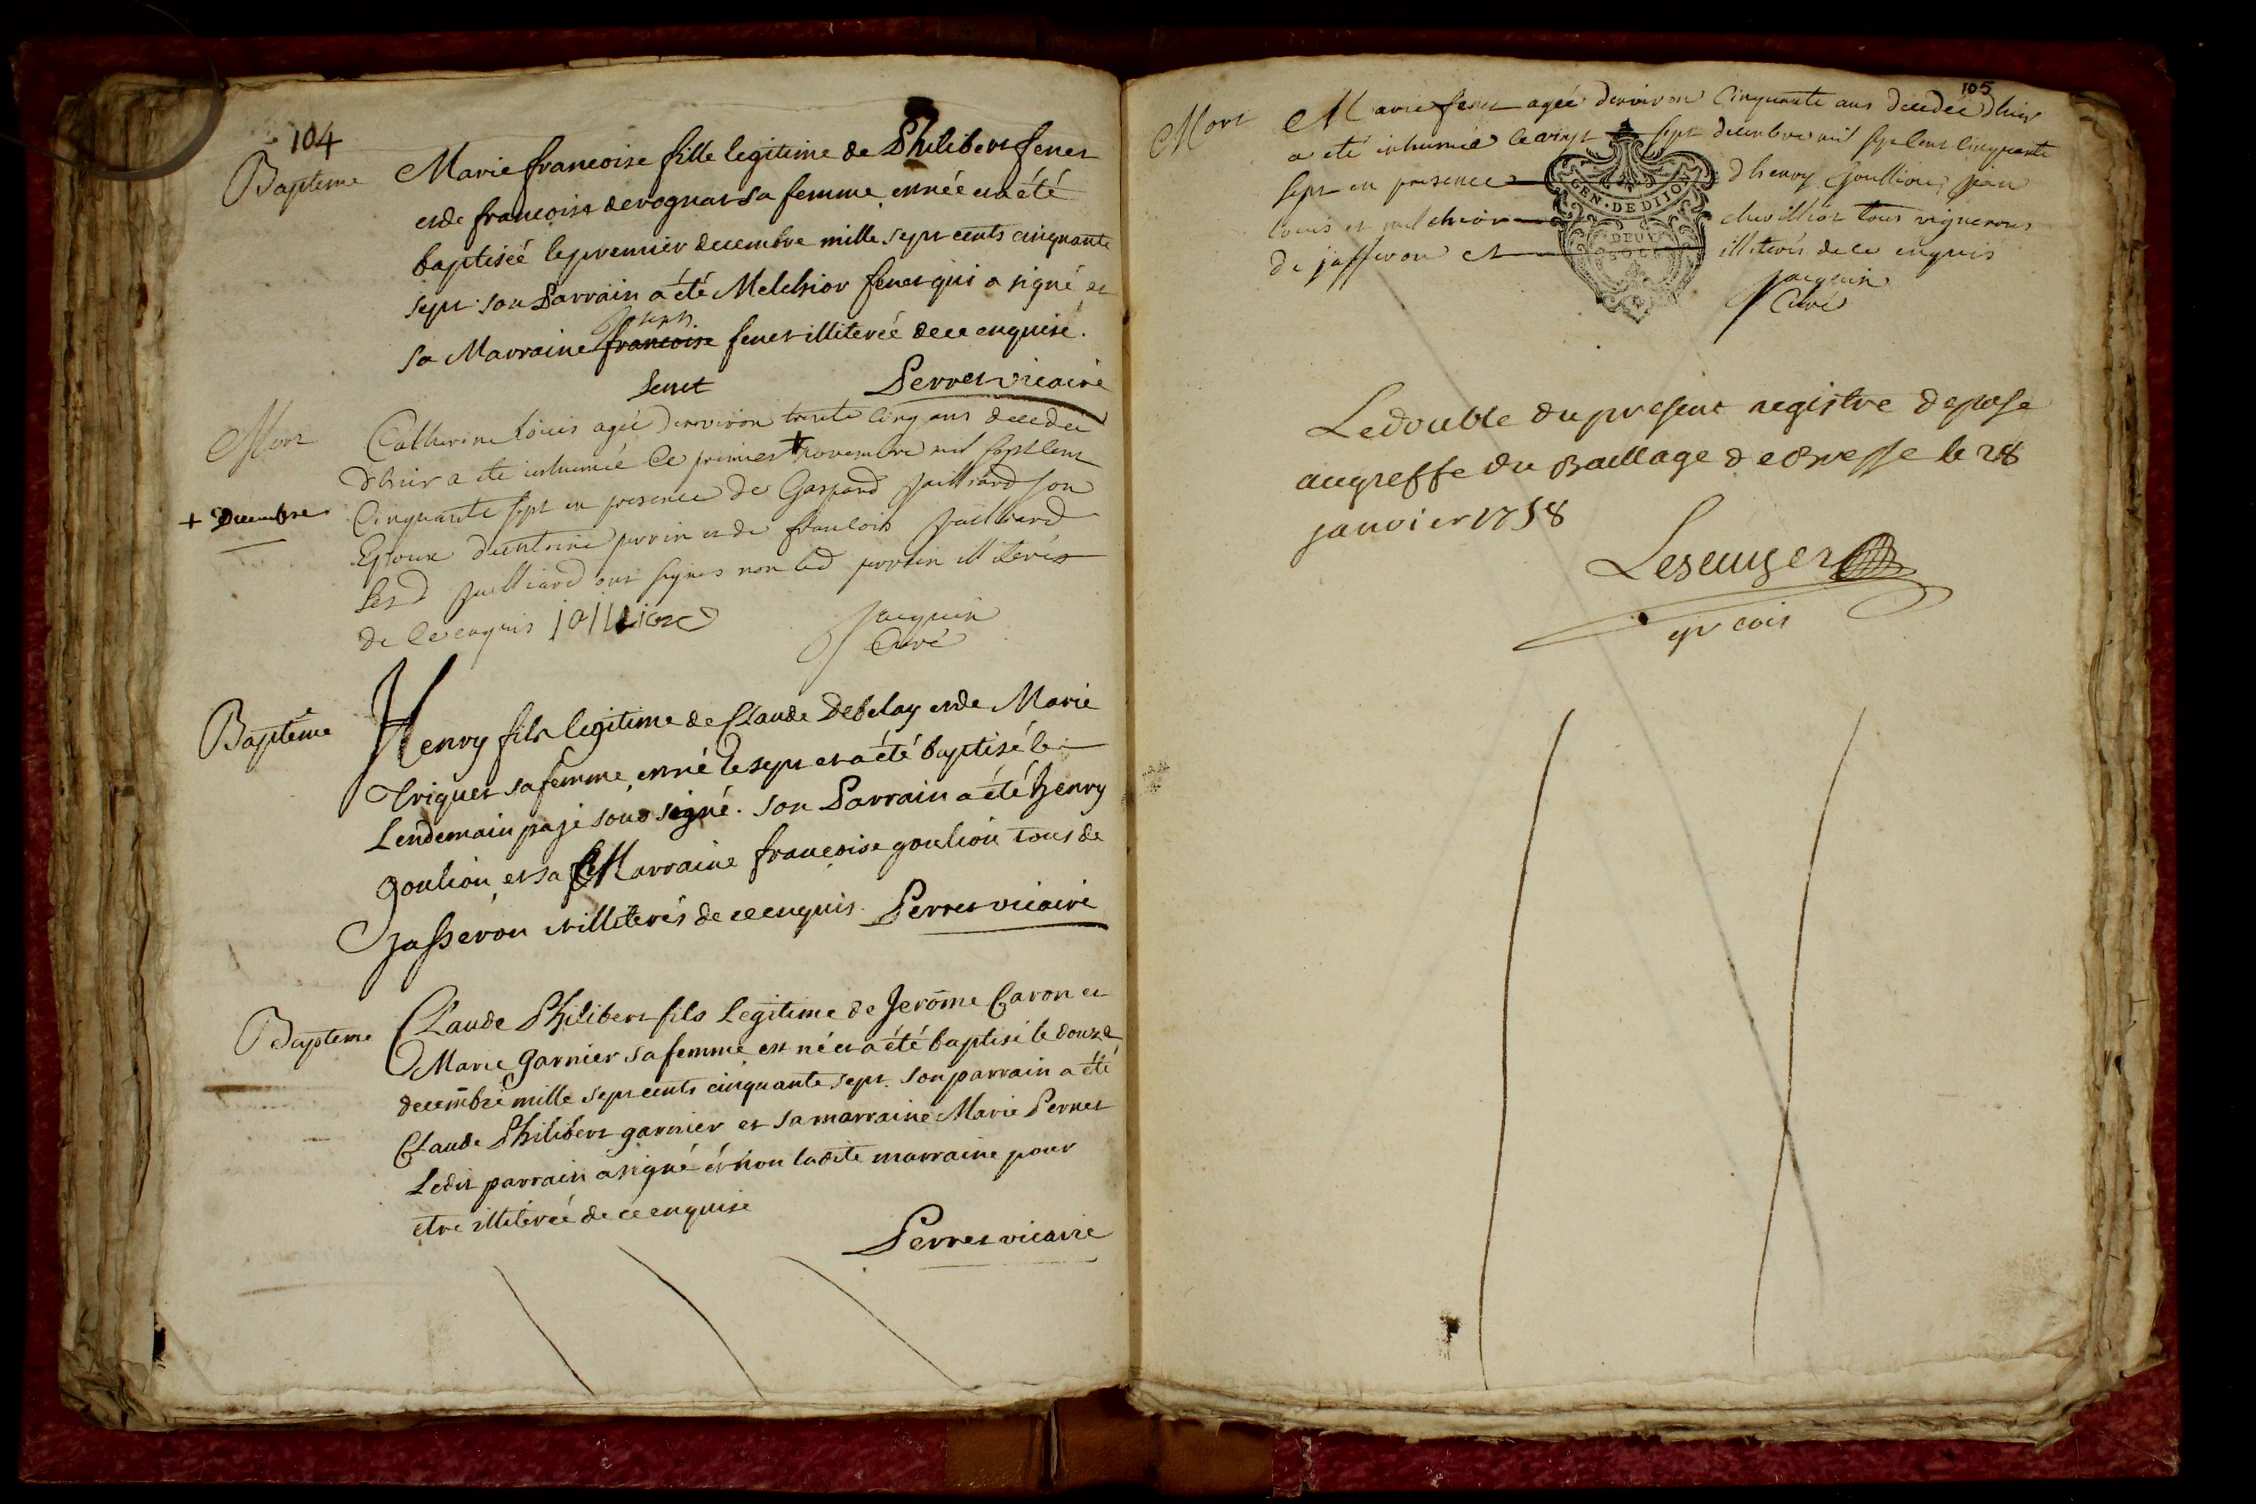 104
Bapteme
Marie francoise fille legitime de Philibert fenet
et de francoise derognat sa femme, est née et a été
baptisée le premier decembre mille sept cents cinquante
sept. son Parrain a été Melchior fenet qui a signé et
sa Marraine francoise fenet illiterée de ce enquise.
fenet Perret vicaire
Mort
Catherine Loüis agée denviron trente cinq ans decedée
dhier a eté inhumée le premier + novembre mil sept cent
+ Decembre
Cinquante sept en presence de Gaspard Juilliard son
Epoux dantoine perrin et de francois Juilliard
Lesd Juilliard ont signés non led perrin illiterés
de ce enquis
Jacquin
Curé
Bapteme
Henry fils legitime de Claude Debelay et de Marie
Triquet sa femme, est né le sept et a été baptisé le
Lendemain par je sous signé. son Parrain a été henry
goulion, et sa Marraine françoise goulion tous de
Jasseron et illiterés de ce enquis. Perret vicaire
Bapteme
Claude Philibert fils Legitime de Jerôme Caron et
Marie garnier sa femme est né et a été baptisé le douze
decembre mille sept cents cinquante sept. son parrain a été
Claude Philibert garnier et sa marraine Marie Pernet
Ledit parrain a signé et non ladite marraine pour
etre illiterée de ce enquise
Perret vicaire
105
Mort
Marie fenet agée denviron Cinquante ans decedée dhier
a eté inhumée le vingt sept decembre mil sept cent cinquante
sept en presence dhenry Goullion, Jean
Louis et melchior chevillat tous vignerons
de jasseron et illiterés de ce enquis
GEN. DE DIJON
DEUX
SOLS
Jacquin
Curé
Le double du present registre deposé
au greffe du Baillage de Bresse le 28
janvier 1758